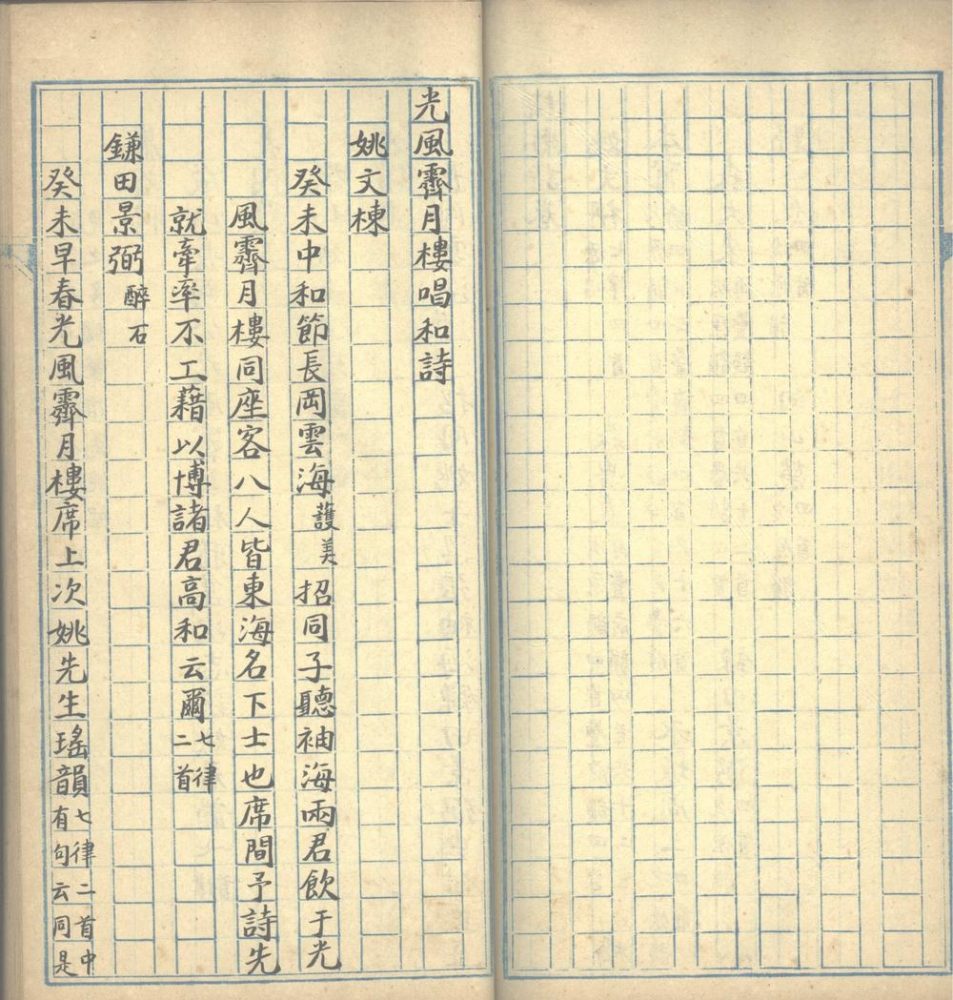 光風霽月樓唱和詩
姚文棟
癸未中和節長岡雲海護美招同子聽袖海兩君飲于光
風霽月樓同座客八人皆東海名下士也席間予詩先
就牽率不工藉以博諸君高和云爾七律二首
鎌田景弼醉石
癸未早春光風霽月樓席上次姚先生瑤韻七律二首中有句云同是